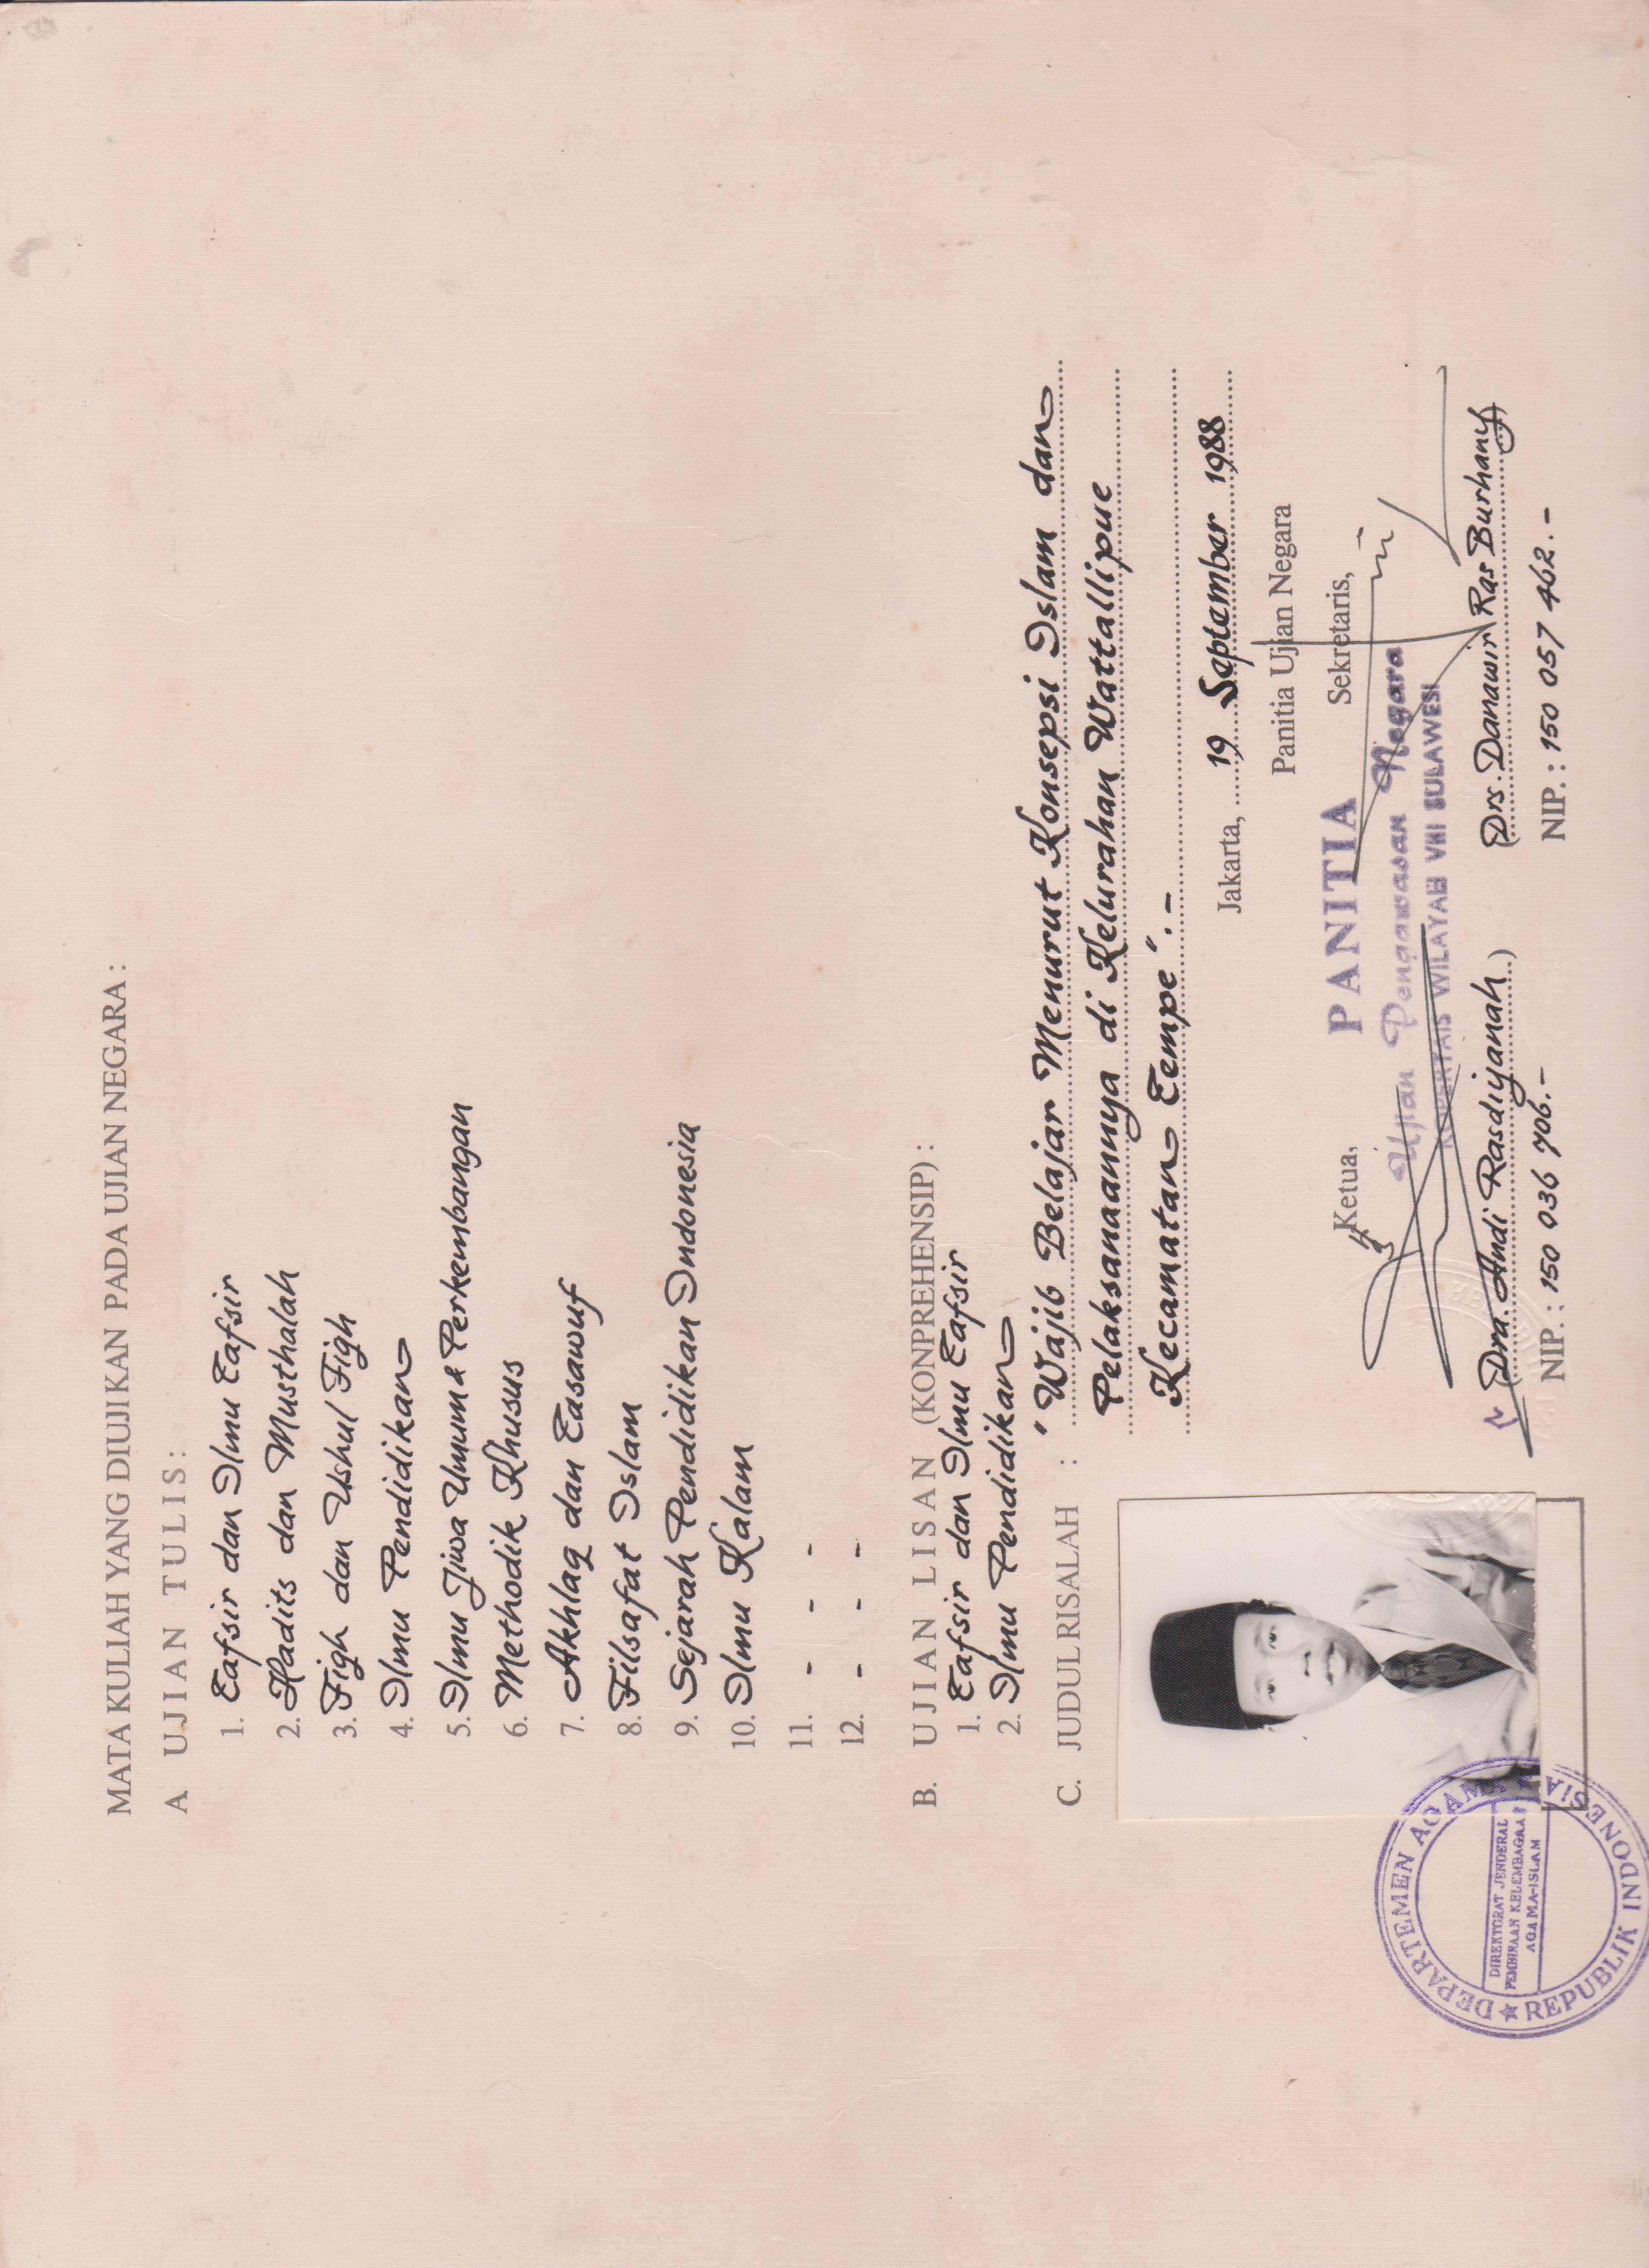 MATA KULIAH YANG DIUJIKAN PADA UJIAN NEGARA :
A UJIAN TULIS :
1. Tafsir dan Ilmu Tafsir
2. Hadits dan Musthalah
3. Fiqh dan Ushul Fiqh
4. Ilmu Pendidikan
5. Ilmu Jiwa Umum & Perkembangan
6. Methodik Khusus
7. Akhlaq dan Tasawuf
8. Filsafat Islam
9. Sejarah Pendidikan Indonesia
10. Ilmu Kalam
11. - - -
12. - - -
B. UJIAN LISAN (KONPREHENSIP) :
1. Tafsir dan Ilmu Tafsir
2. Ilmu Pendidikan
C. JUDUL RISALAH : "Wajib Belajar Menurut Konsepsi Islam dan
Pelaksanaannya di Kelurahan Wattallipue
Kecamatan Tempe".-
Jakarta, 19 September 1988
Panitia Ujian Negara
Ketua, Sekretaris,
PANITIA
Ujian Pengawasan Negara
KOPERTAIS WILAYAH VIII SULAWESI
(Dra. Andi Rasdiyanah) (Drs. Danawir Ras Burhany)
NIP. : 150 036 706.- NIP. : 150 057 462.-
DEPARTEMEN AGAMA
DIREKTORAT JENDERAL
PEMBINAAN KELEMBAGAAN
AGAMA-ISLAM
REPUBLIK INDONESIA